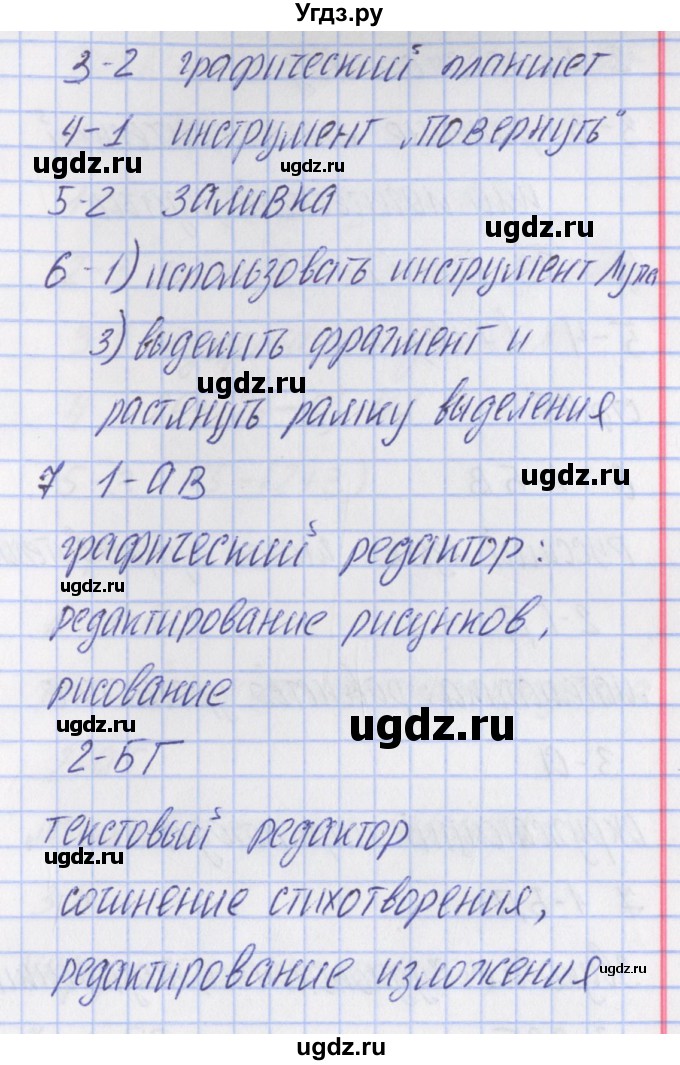 Угдз.ру
3-2 графический планшет
4-1 инструмент „повернуть"
ugdz.ru ugdz.ru
5-2 заливка
ugdz.ru
6-1) использовать инструмент Лупа
3) выделить фрагмент и
ugdz.ru
растянуть рамку выделения
7 1-АВ
ugdz.ru
графический редактор:
ugdz.ru
редактирование рисунков,
рисование
ugdz.ru ugdz.ru
2-БГ
текстовый редактор
ugdz.ru
сочинение стихотворения,
редактирование изложения
ugdz.ru
ugdz.ru